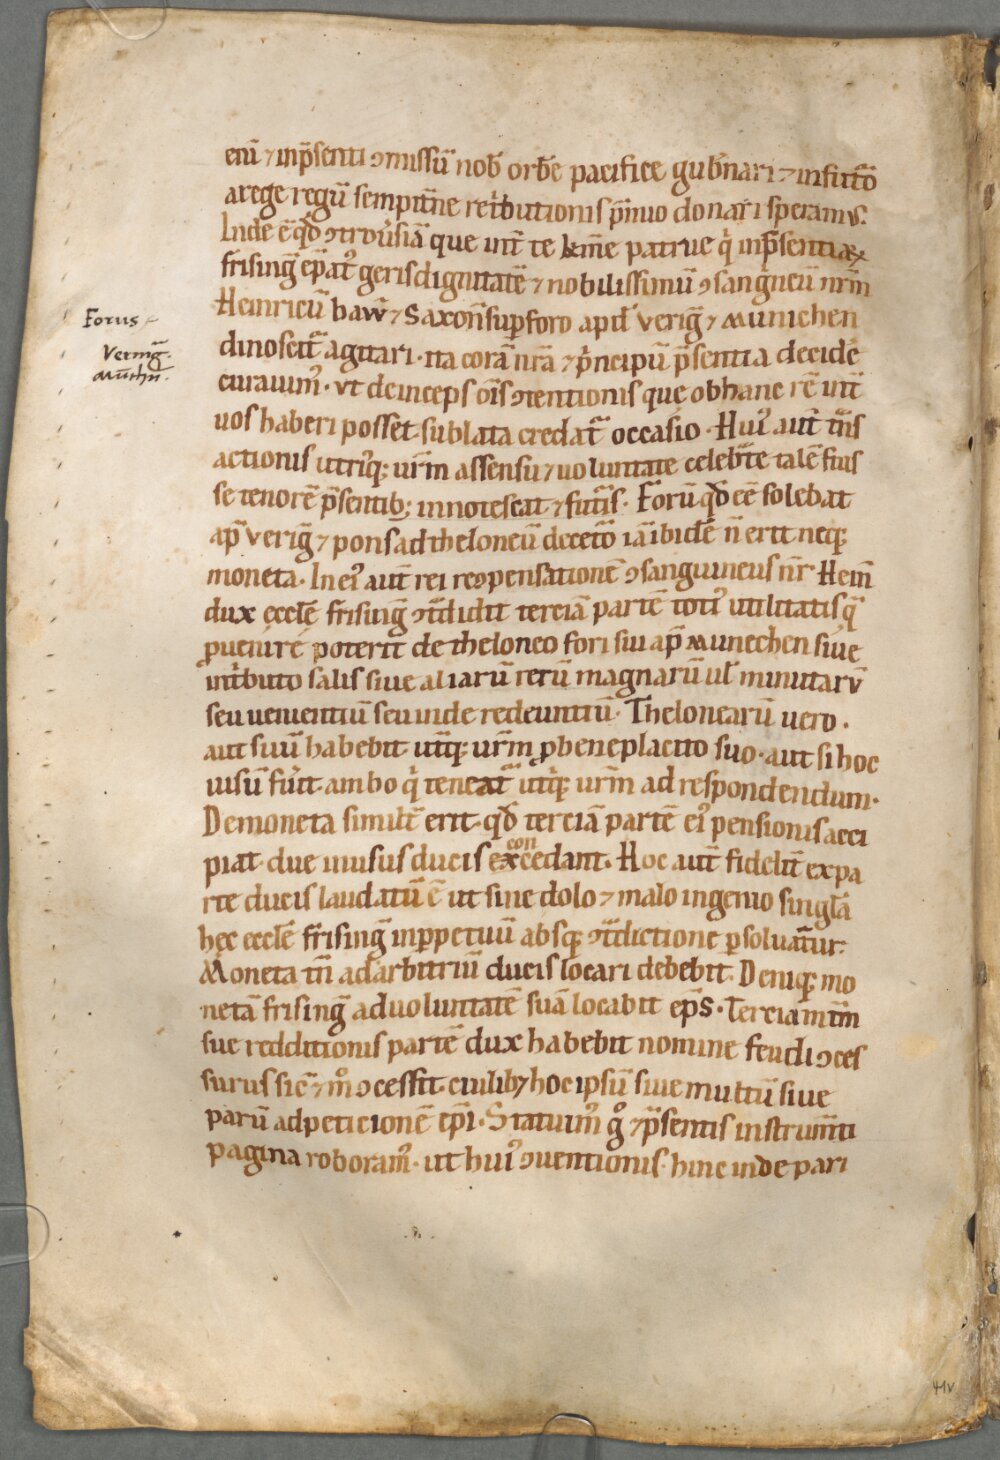 eni᷑ ⁊ inp̄senti ɔmissū nob̄ orbē pacifice gub̄nari ⁊ infut̄o
arege regū sempit̄ne ret̍butionis p̄mio donari speramꝰ.
Inde ē qd̄ ɔtrov̍siā que int̄ te kr̄me patrue q̍ inp̄sentiaꝝ
frisinḡ ep̄atꝰ geris dignitatē ⁊ nobilissimū ɔsangneū nr̄m
Heinricū baw̄ ⁊ Saxon̄ sup foro apd̄ veriḡ ⁊ Munichen
Forus
Verinḡ.
Mūchn̄.
dinoscit̄ agitari · ita corā nr̄a ⁊ p̍ncipū p̄sentia decide
curauimꝰ · vt deinceps oīs ɔtentionis que ob hanc rē int̄
uos haberi posset · sublata credat̄ occasio · Huiꝰ aut̄ t̄nis
actionis utriꝙ; ur̄m assensu ⁊ uoluntate celebt̄e talē fuis
se tenorē p̄sentib; innotescat ⁊ fut̄is · Forū qd̄ eē solebat
ap̄ veriḡ ⁊ pons ad theloneū de cet̄o iā ibidē n̄ erit neq;
moneta · In eiꝰ aut̄ rei reɔpensationē ɔsanguineus nr̄ Hein̄
dux eccl̄e frisinḡ ɔt̄didit terciā partē totiꝰ utilitatis q̄
ꝓuenire poterit de theloneo fori sui ap̄ Munechen siue
int̍buto salis siue aliarū rerū magnarū ul̄ minutarū
seu uenientiū seu inde redeuntiū · Thelonearū uero ·
aut suū habebit ut̄q; ur̄m ꝓ beneplacito suo · aut si hoc
uisū fūit · ambo q̍ teneat̄ ut̍q; ur̄m ad respondendum ·
De moneta simil̄r erit · qd̄ terciā partē eiꝰ pensionis acci
con
piat · due in usus ducis excedant · Hoc aut̄ fidel̄r ex pa
rte ducis laudatū ē ut sine dolo ⁊ malo ingenio singl̄a
hęc eccl̄e frisinḡ inp̱petuū absq; ɔt̄dictione p̱soluat̄ur ·
Moneta tn̄ ad arbitriū ducis locari debebit · Deniq; mo
netā frisinḡ ad uoluntatē suā locabit ep̄s · Terciam tn̄m
sue redditionis partē dux habebit nomine feudi ɔces
surus sic̄ ⁊ m̊ ɔcessit · cuilib; hoc ipsū siue multū siue
parū ad peticionē ep̄i · Statuimꝰ g̊ ⁊ p̄sentis instrum̄ti
pagina roboramꝰ · ut huiꝰ ɔuentionis · hinc inde pari
41v